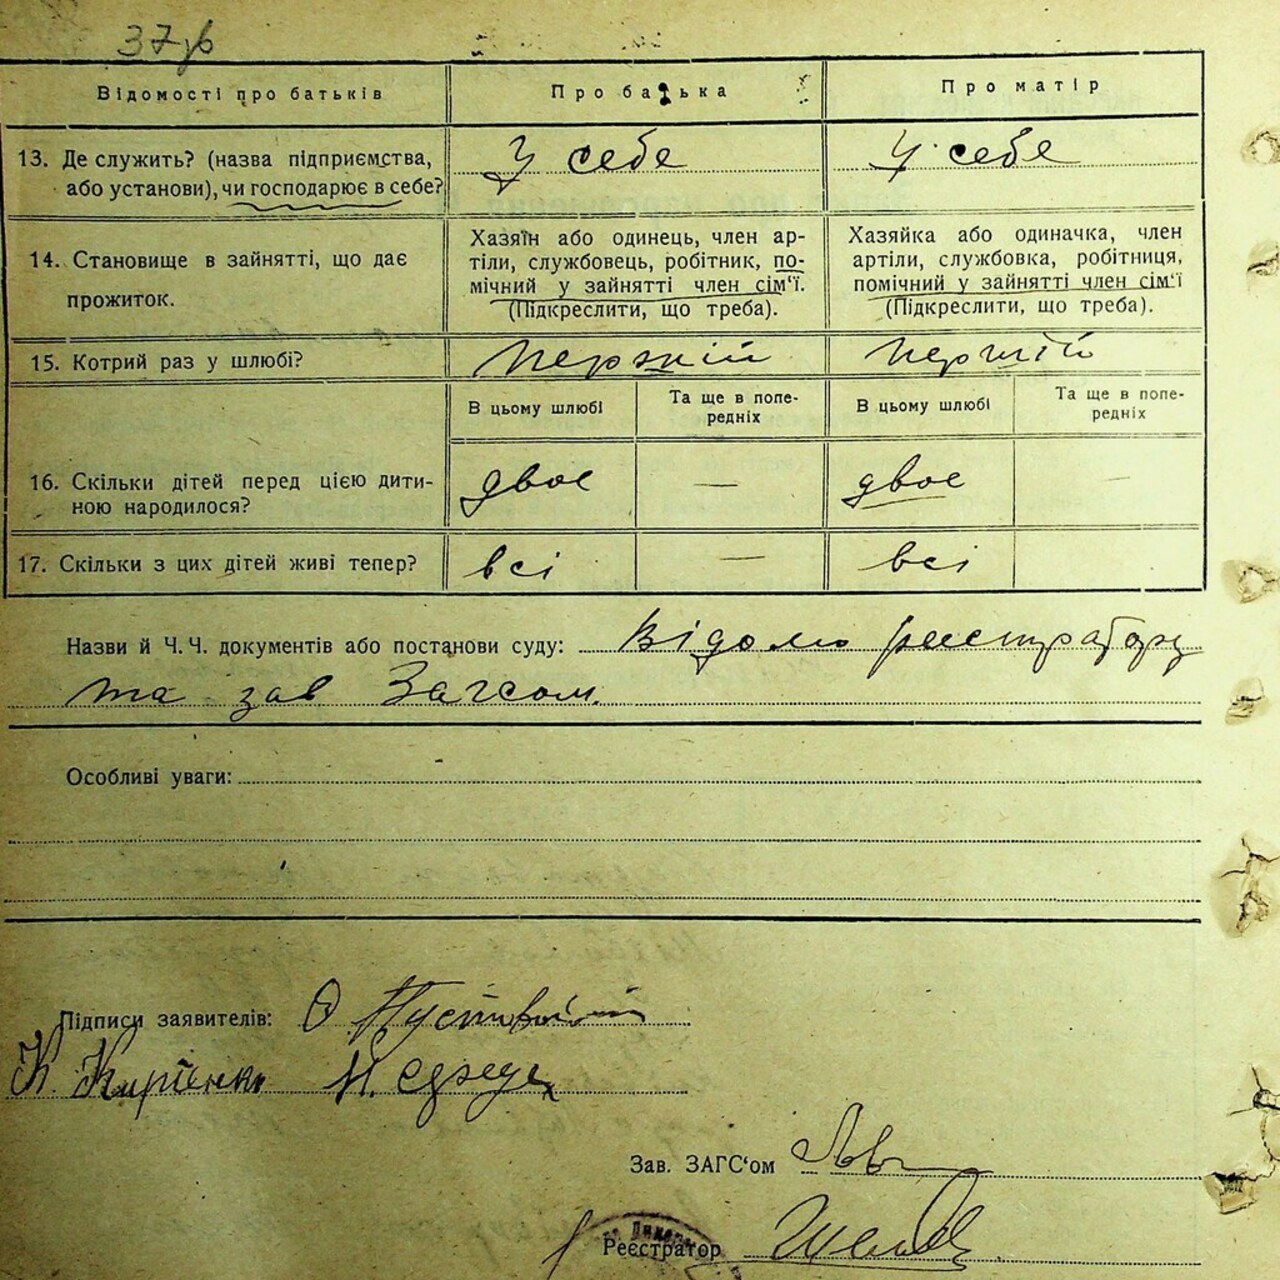 37 зв
Відомості про батьків
Про батька
Про матір
13. Де служить? (назва підприємства,
або установи), чи господарює в себе?
У себе
У себе
14. Становище в зайнятті, що дає
прожиток.
Хазяїн або одинець, член ар-
тіли, службовець, робітник, по-
мічний у зайнятті член сім'ї.
(Підкреслити, що треба).
Хазяйка або одиначка, член
артіли, службовка, робітниця,
помічний у зайнятті член сім'ї
(Підкреслити, що треба).
15. Котрий раз у шлюбі?
перший
перший
В цьому шлюбі
Та ще в попе-
редніх
В цьому шлюбі
Та ще в попе-
редніх
16. Скільки дітей перед цією дити-
ною народилося?
двоє
—
двоє
—
17. Скільки з цих дітей живі тепер?
всі
—
всі
Назви й Ч. Ч. документів або постанови суду: Відомо реєстратору
та зав Загсом.
Особливі уваги:
Підписи заявителів: О
К. Кирієнко
Зав. ЗАГС'ом
Реєстратор